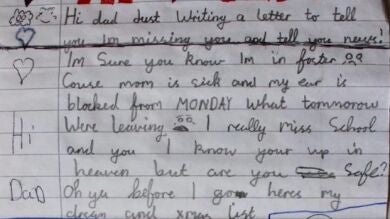 Hi dad Just Writing a letter to tell
you Im missing you and tell you news!
I'm Sure you know Im in foster
Couse mom is sick and my ear is
blocked from MONDAY What tommorow
Were leaving I really miss School
Hi
and you I know your up in
heaven but are you Safe?
DaD
Oh ya before I go heres my
dream and xmas list